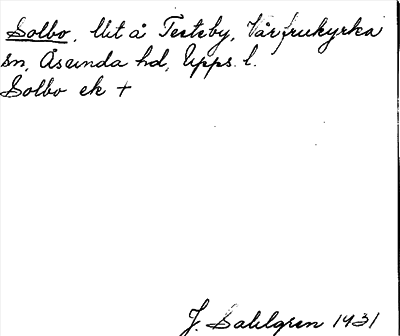 Solbo, Utt å Testeby, Vårfrukyrka
sn, Åsunda hd, Upps. l.
Solbo ek +
J. Sahlgren 1931